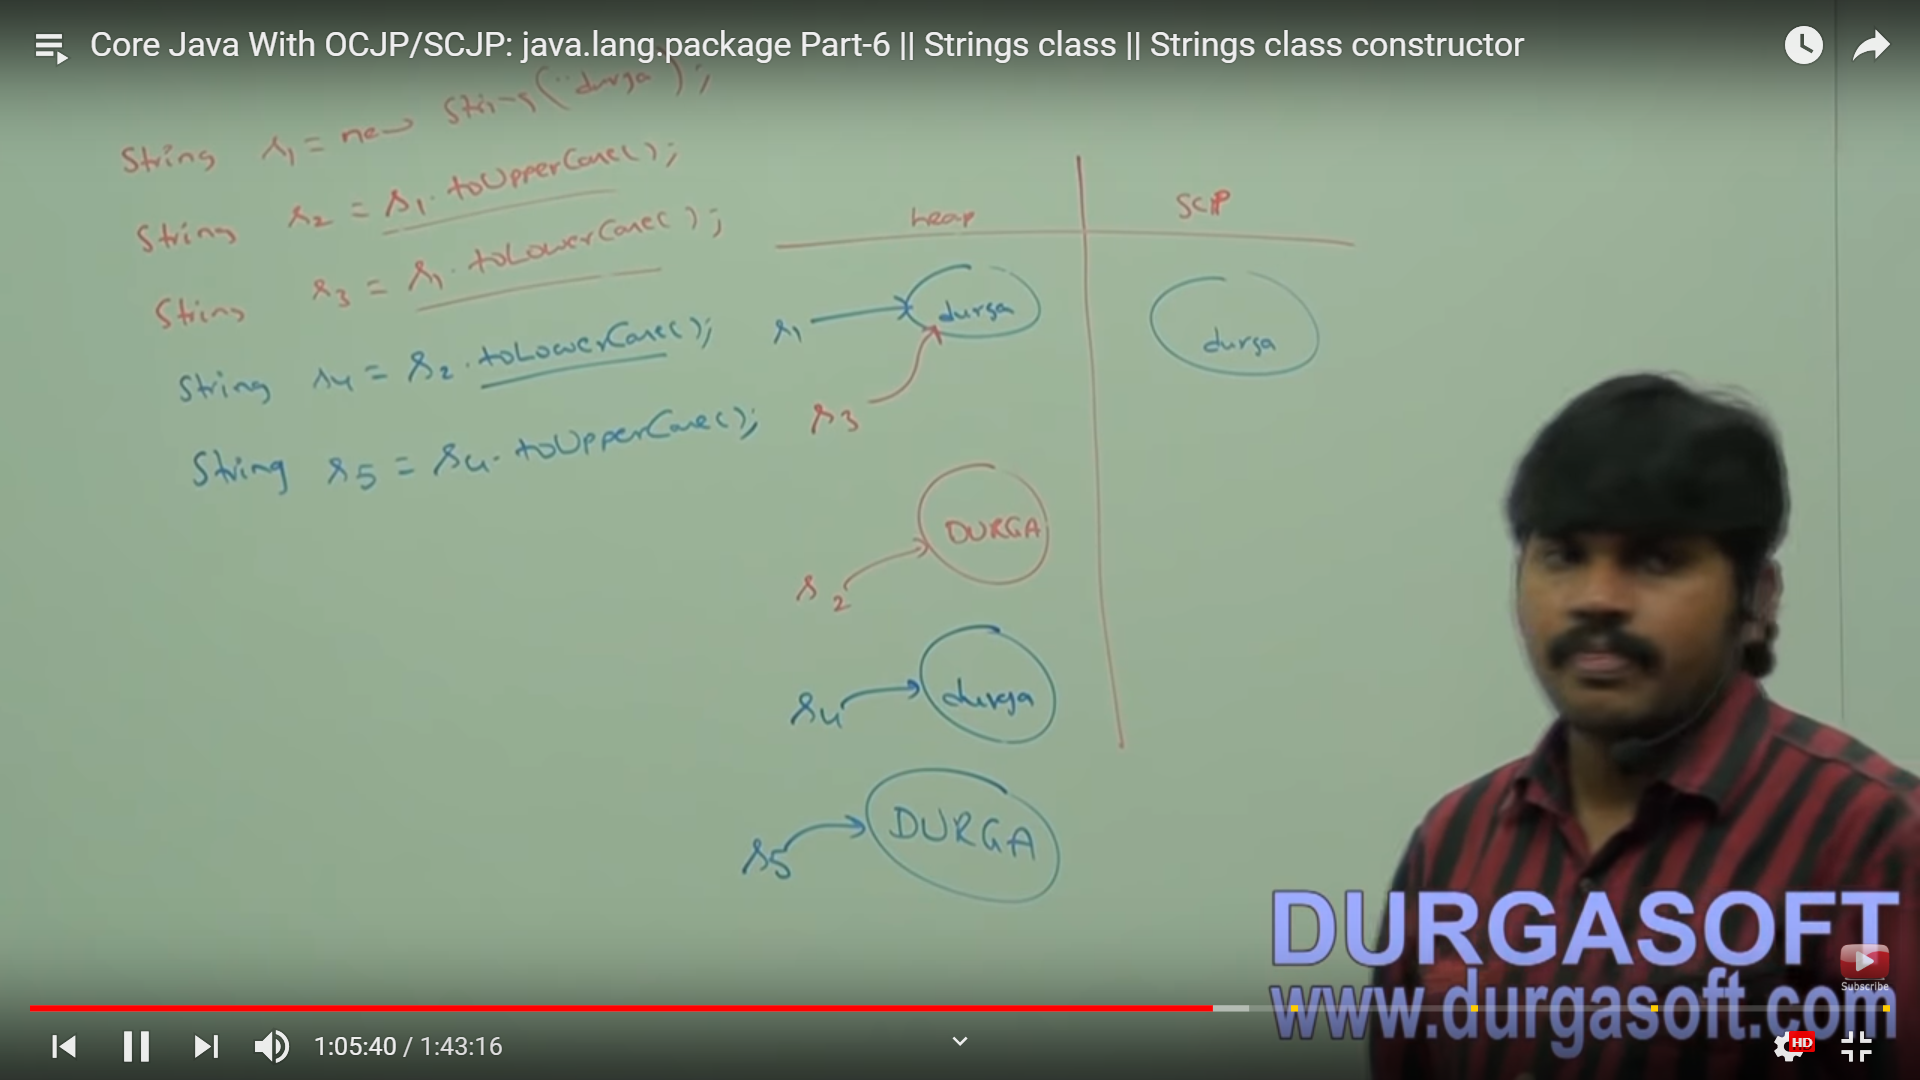 Core Java With OCJP/SCJP: java.lang.package Part-6 || Strings class || Strings class constructor
String s1 = new String("durga");
String s2 = s1.toUpperCase();
String s3 = s1.toLowerCase();
String s4 = s2.toLowerCase();
String s5 = s4.toUpperCase();
heap
SCP
s1
durga
durga
s3
DURGA
s2
s4
durga
s5
DURGA
DURGASOFT
www.durgasoft.com
Subscribe
1:05:40 / 1:43:16
HD